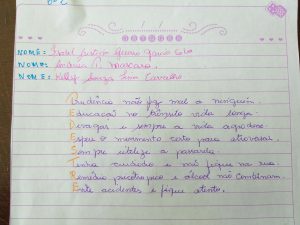 6º C
NOME:
NOME: Andreia P.
NOME: Kelly Souza Lima Carvalho
Prudência não faz mal a ninguém.
Educação no trânsito vida longa.
Devagar e sempre a vida agradece.
Espere o momento certo para atravessar.
Sempre utilize a passarela.
Tenha cuidado e não fique na rua
Remédio psicotrópico e álcool não combinam.
Evite acidentes e fique atento.